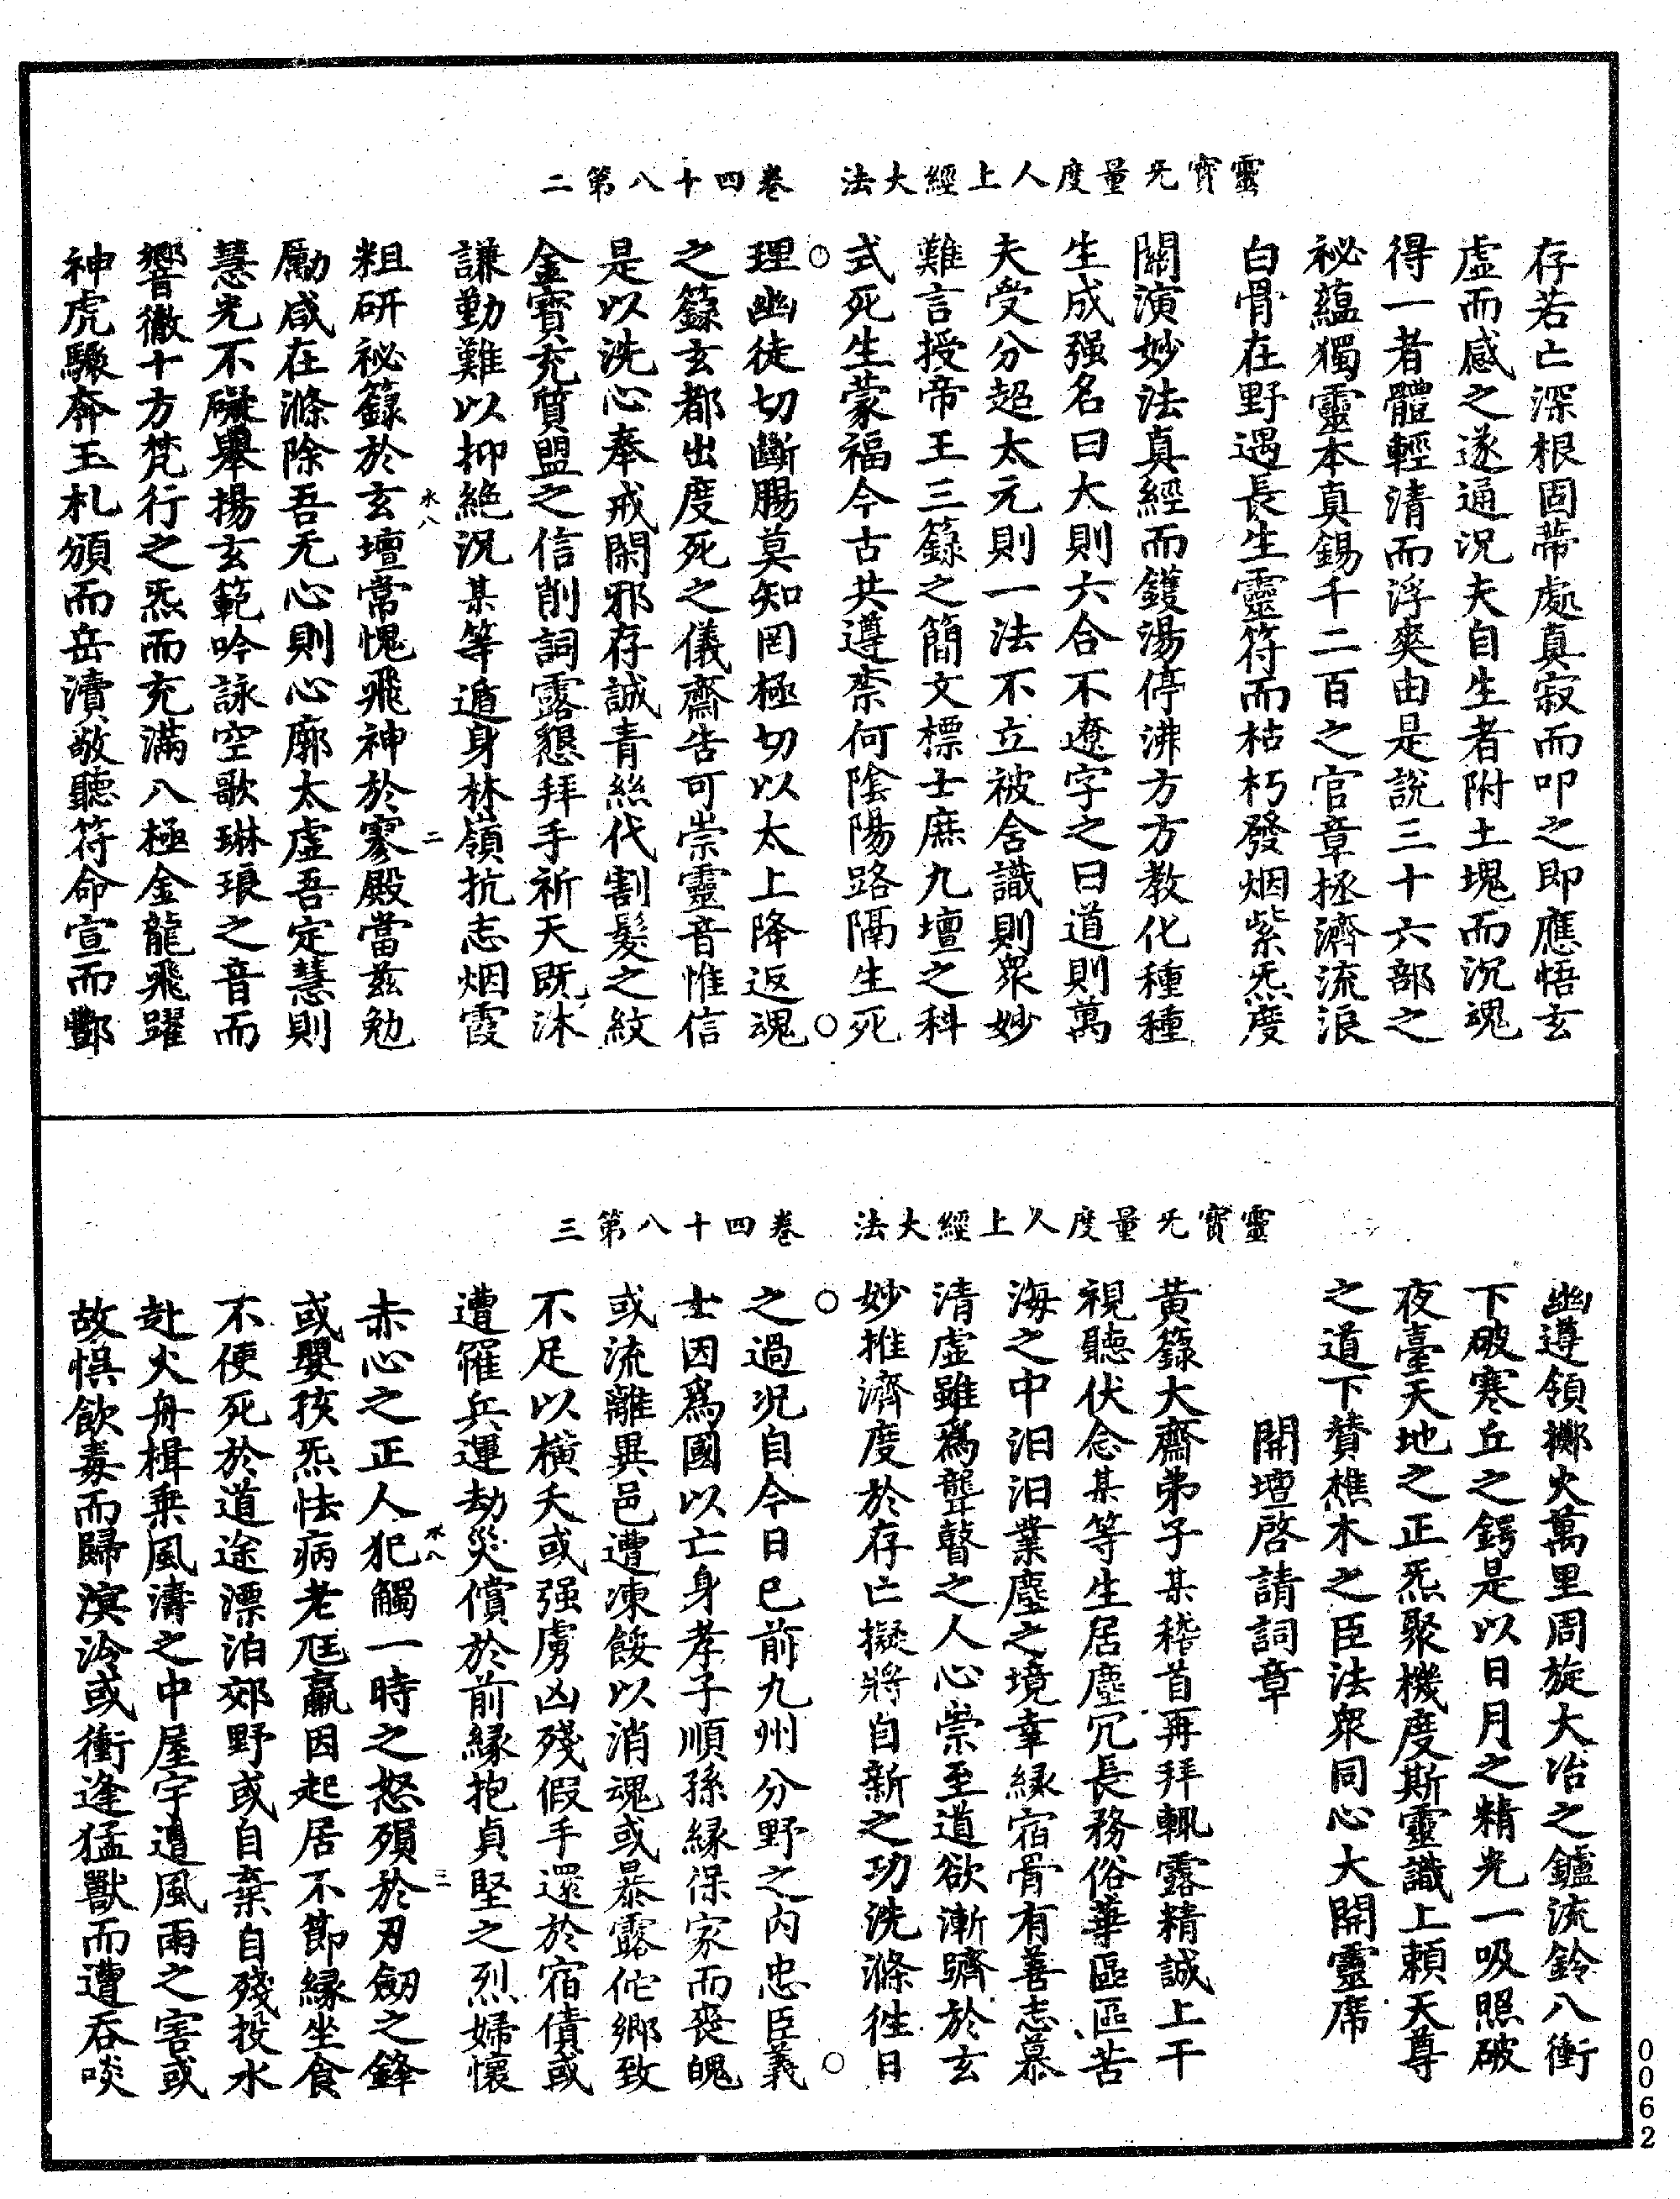 靈寶无量度人上經大法　卷四十八第二
存若亡深根固蒂處真寂而叩之即應悟玄
虛而感之遂通況夫自生者附土塊而沉魂
得一者體輕清而浮爽由是說三十六部之
祕蘊獨靈本真錫千二百之官章拯濟流浪
白骨在野遇長生靈符而枯朽發烟紫炁度
關演妙法真經而鑊湯停沸方方教化種種
生成强名曰大則六合不遼字之曰道則萬
夫受分超太元則一法不立被含識則眾妙
難言授帝王三籙之簡文標士庶九壇之科
式死生蒙福今古共遵柰何陰陽路隔生死
理幽徒切斷腸莫知罔極切以太上降返魂
之籙玄都出度死之儀齋告可崇靈音惟信
是以洗心奉戒閑邪存誠青絲代割髮之紋
金寶充質盟之信削詞露懇拜手祈天既沐
謙勤難以抑絕況某等遁身林嶺抗志烟霞
水八　二
粗研祕籙於玄壇常愧飛神於寥殿當茲勉
勵咸在滌除吾无心則心廓太虛吾定慧則
慧光不礙舉揚玄範吟詠空歌琳琅之音而
響徹十方梵行之炁而充滿八極金龍飛躍
神虎驟奔玉札頒而岳瀆敬聽符命宣而酆
靈寶无量度人上經大法　卷四十八第三
幽遵領擲火萬里周旋大冶之鑪流鈴八衝
下破寒丘之鍔是以日月之精光一吸照破
夜臺天地之正炁聚機度斯靈識上賴天尊
之道下贊樵木之臣法眾同心大開靈席
開壇啓請詞章
黃籙大齋弟子某稽首再拜輒露精誠上干
視聽伏念某等生居塵冗長務俗華區區苦
海之中汩汩業塵之境幸緣宿骨有善志慕
清虛雖爲聾瞽之人心崇至道欲漸躋於玄
妙推濟度於存亡擬將自新之功洗滌往日
之過況自今日已前九州分野之內忠臣義
士因爲國以亡身孝子順孫緣保家而喪魄
或流離異邑遭凍餒以消魂或暴露佗鄉致
不足以橫夭或强虜凶殘假手還於宿債或
遭罹兵運劫災償於前緣抱貞堅之烈婦懷
水八　三
赤心之正人犯觸一時之怒殞於刃劒之鋒
或嬰孩炁怯病老尫羸因起居不節緣坐食
不便死於道途漂泊郊野或自棄自殘投水
赴火舟楫乗風濤之中屋宇遭風雨之害或
故悞飲毒而歸溟泠或衝逢猛獸而遭吞啖
0062